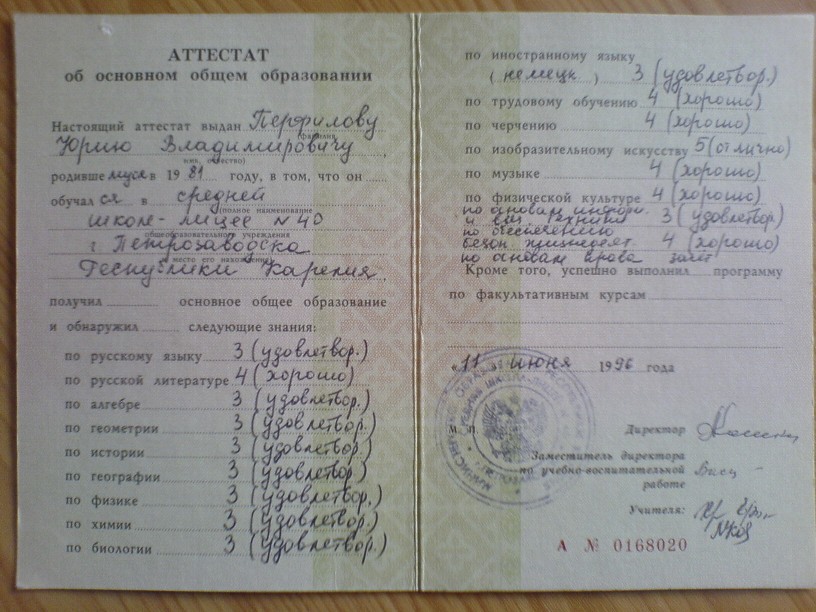 АТТЕСТАТ
об основном общем образовании
Настоящий аттестат выдан Перфилову
(фамилия,
Юрию Владимировичу
имя, отчество)
родившемуся в 1981 году, в том, что он
обучался в средней
(полное наименование
школе-лицее №40
общеобразовательного учреждения
г. Петрозаводска
место его нахождения)
Республики Карелия
получил основное общее образование
и обнаружил следующие знания:
по русскому языку 3 (удовлетвор.)
по русской литературе 4 (хорошо)
по алгебре 3 (удовлетвор.)
по геометрии 3 (удовлетвор.)
по истории 3 (удовлетвор.)
по географии 3 (удовлетвор.)
по физике 3 (удовлетвор.)
по химии 3 (удовлетвор.)
по биологии 3 (удовлетвор.)
по иностранному языку
(немецк) 3 (удовлетвор.)
по трудовому обучению 4 (хорошо)
по черчению 4 (хорошо)
по изобразительному искусству 5 (отлично)
по музыке 4 (хорошо)
по физической культуре 4 (хорошо)
по основам информ.
и выч техники 3 (удовлетвор.)
по обеспечению
безоп жизнедеят 4 (хорошо)
по основам права зачет
Кроме того, успешно выполнил программу
по факультативным курсам
"11" июня 1996 года
М. П.
Директор
Заместитель директора
по учебно-воспитательной
работе
Учителя:
А № 0168020